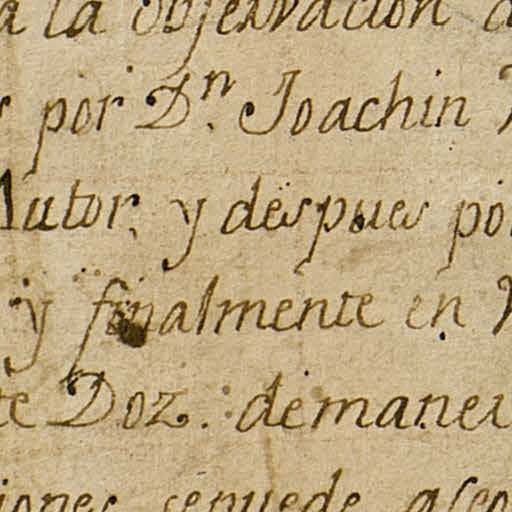 a la observacion
por D.n Joachin
Autor, y despues por
y finalmente en
te Doz. demaner
iones sepuede aseo